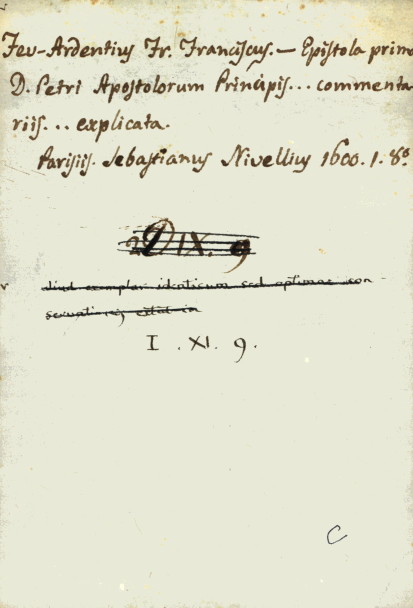 Feu-Ardentius Fr. Franciscus. — Epistola prima
D. Petri Apostolorum Principis... commenta
riis... explicata.
Parisiis. Sebastianus Nivellius 1600. 1. 8º.
D IX. 9
aliud exemplar identicum sed optimae con-
servationis extat in
I . XI . 9.
C